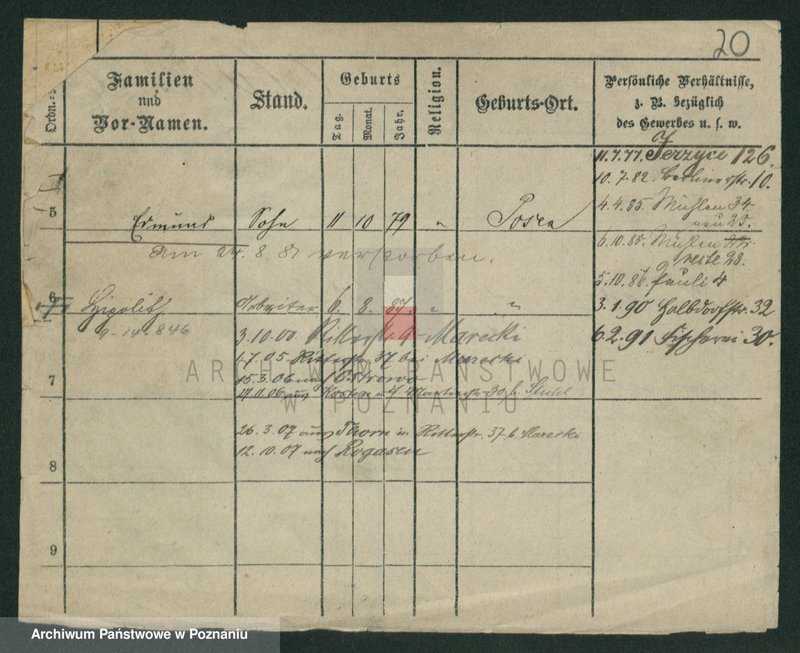 20
Ordn.=
Familien
und
Vor-Namen.
Stand.
Geburts
Tag.
Monat.
Jahr.
Religion.
Geburts-Ort.
Persönliche Verhältnisse,
z. B. bezüglich
des Gewerbes u. s. w.
11.7.77. Jerzyce 126.
10.7.82. Berlinerstr. 10.
4.4.85. Mühlen 34
neu 25.
5
Edmund Sohn 11 10 79 " Posen
6.10.85. Mühlen
28.
Am 24.8.8 verstorben.
5.10.86. Pauli 4
6
Hipolit Arbeiter 6. 8. 87 " "
3.1.90 Halbdorfstr. 32
9-14-846
3.10.00. Marecki
6.2.91 Fischerei 30.
1.7.05 37 bei Marecki
7
15.3.06 nach Ostrowo
19.11.06 aus 30, b.
26.3.07 aus Thorn n. Ritterstr. 37 b. Marecki
12.10.07 nach Rogasen
8
9
ARCHIWUM PAŃSTWOWE
W POZNANIU
Archiwum Państwowe w Poznaniu